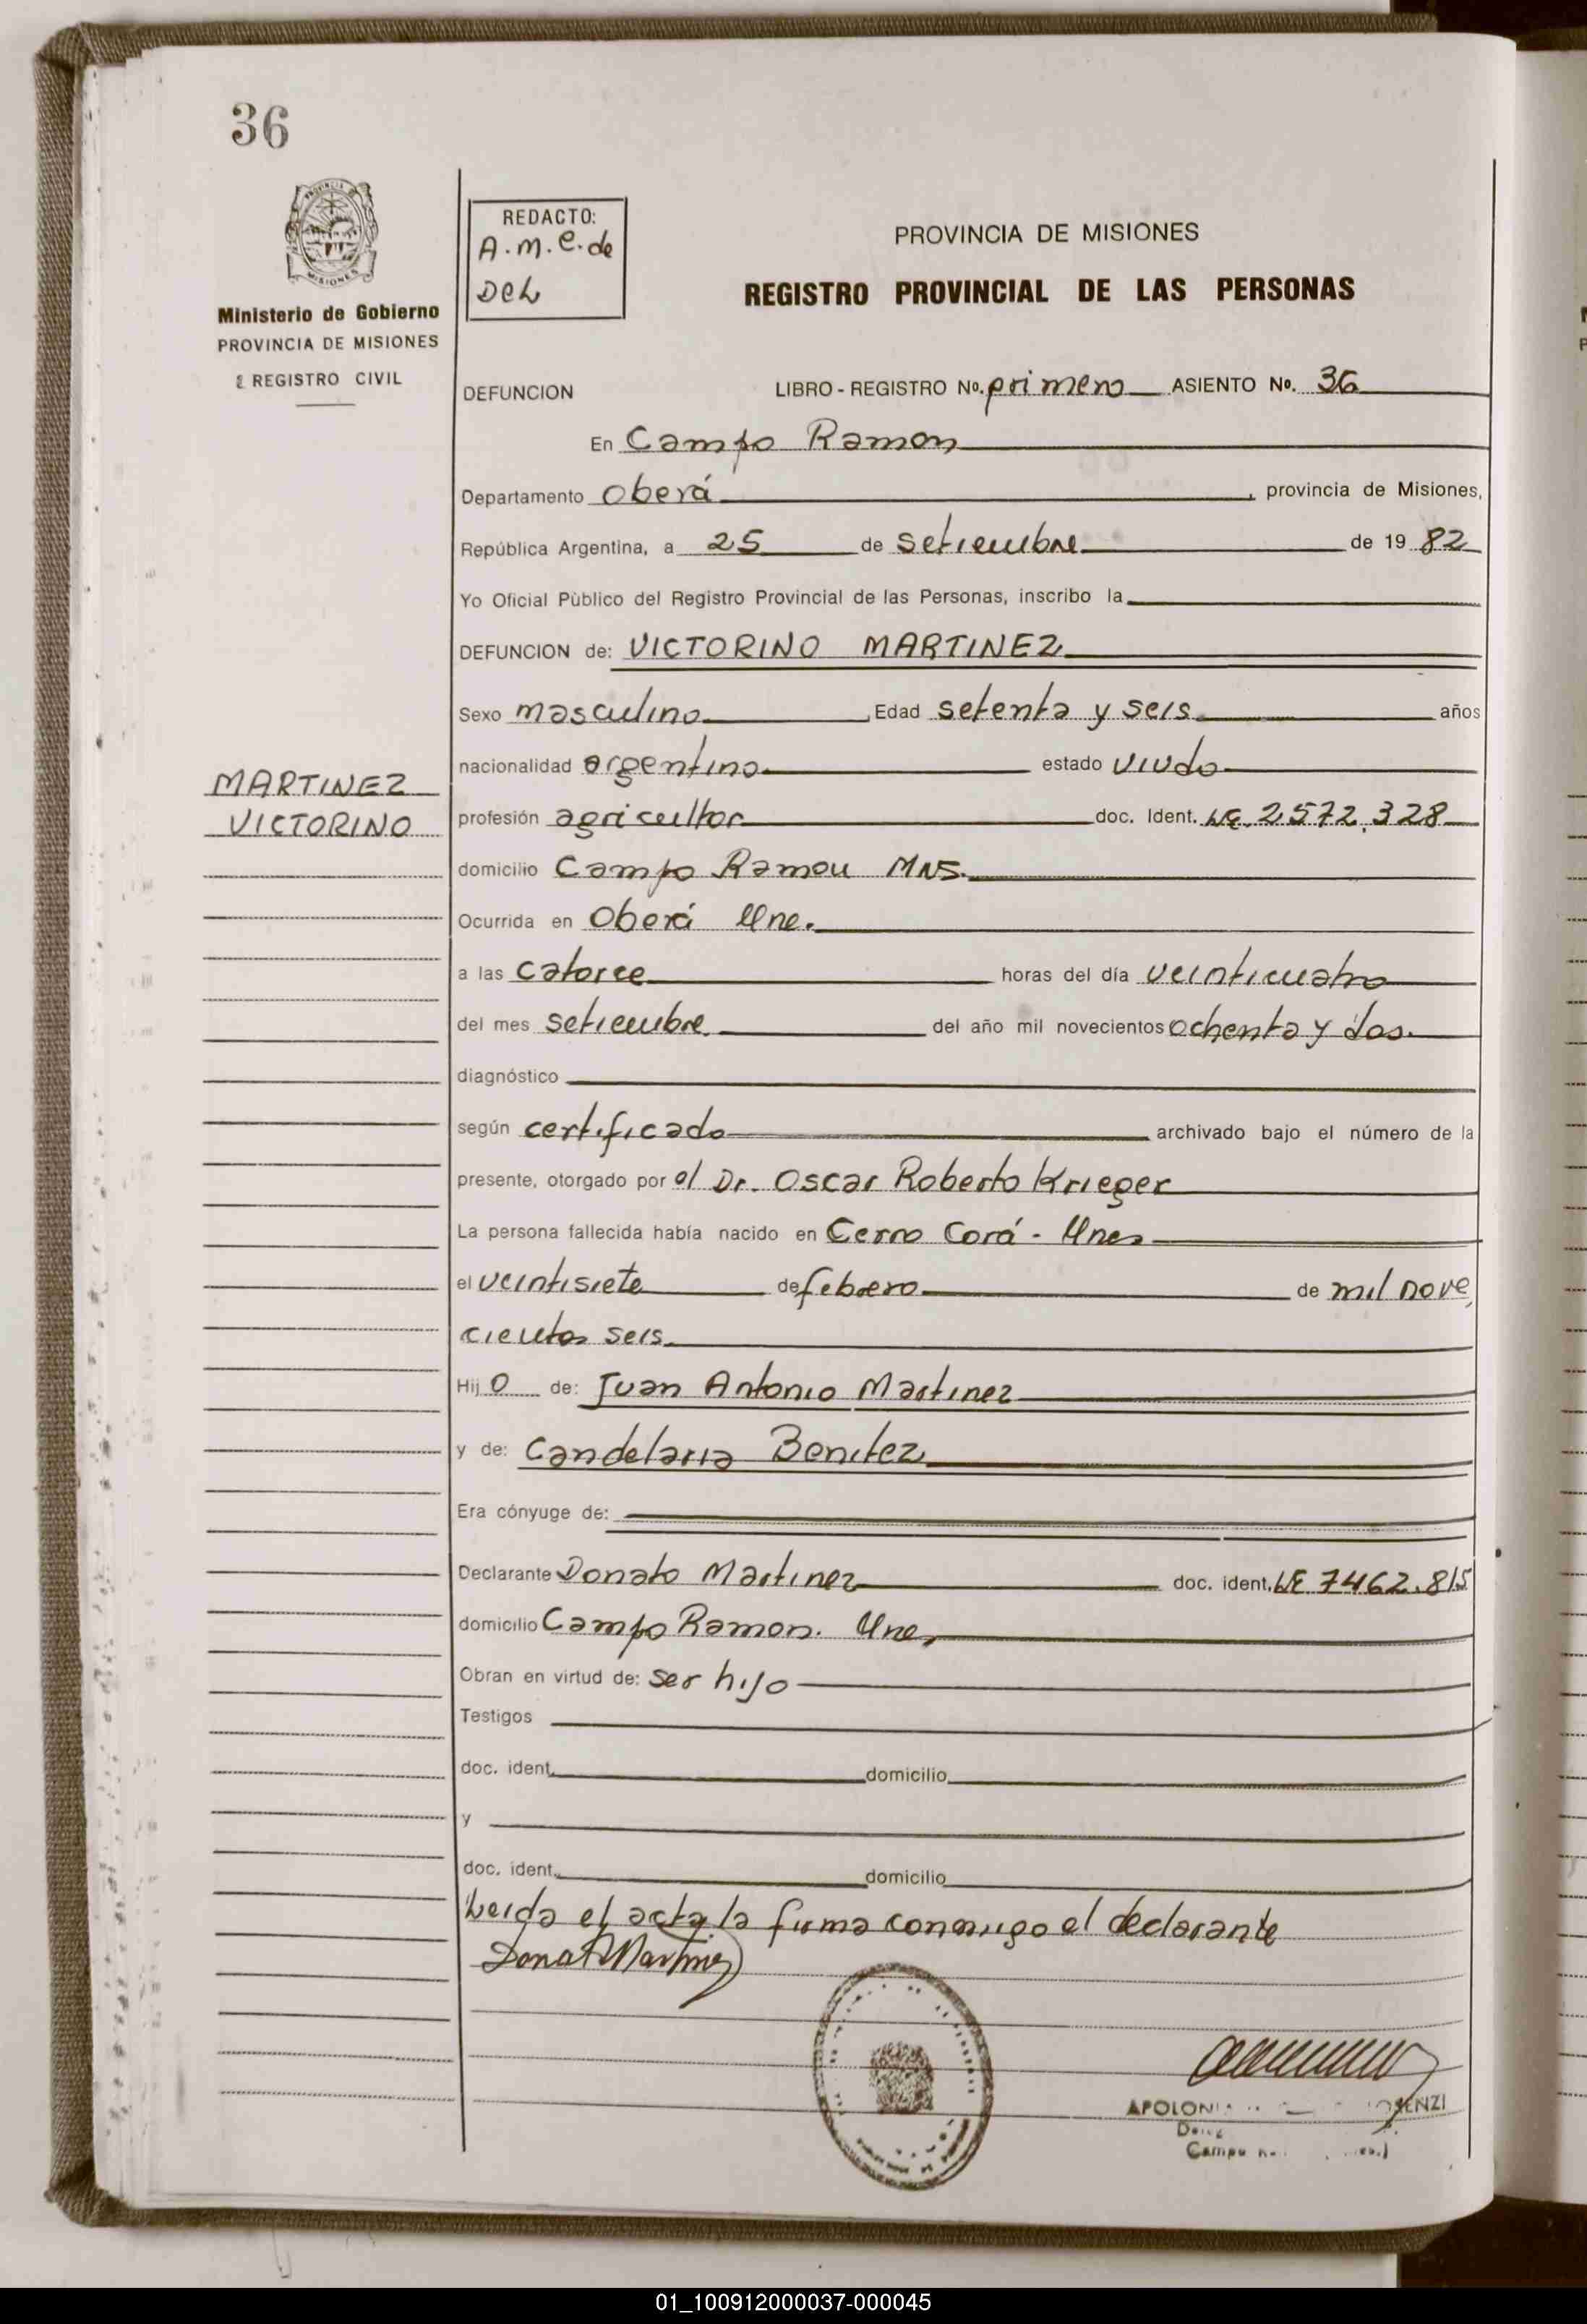 36
PROVINCIA DE
MISIONES
Ministerio de Gobierno
PROVINCIA DE MISIONES
REGISTRO CIVIL
REDACTO:
A.M.C. de
DEL
PROVINCIA DE MISIONES
REGISTRO PROVINCIAL DE LAS PERSONAS
DEFUNCION LIBRO - REGISTRO Nº. primero ASIENTO Nº. 36
En Campo Ramon
Departamento Oberá, provincia de Misiones,
República Argentina, a 25 de setiembre de 19 82
Yo Oficial Pùblico del Registro Provincial de las Personas, inscribo la
DEFUNCION de: VICTORINO MARTINEZ
Sexo masculino, Edad setenta y seis años
nacionalidad argentino estado viudo
MARTINEZ
VICTORINO
profesión agricultor doc. Ident. LE. 2.572.328
domicilio Campo Ramon MNS.
Ocurrida en Oberá Mnes.
a las catorce horas del día veinticuatro
del mes setiembre del año mil novecientos ochenta y dos.
diagnóstico
según certificado archivado bajo el número de la
presente, otorgado por el Dr. Oscar Roberto Krieger
La persona fallecida había nacido en Cerro Corá - Mnes
el veintisiete de febrero de mil nove
cientos seis
Hij o de: Juan Antonio Martinez
y de: Candelaria Benitez
Era cónyuge de:
Declarante Donato Martinez doc. ident. LE 7462.815
domicilio Campo Ramon. Mnes
Obran en virtud de: ser hijo
Testigos
doc. ident. domicilio
y
doc. ident. domicilio
Leida el acta, la firma conmigo el declarante
Donato Martinez
APOLONI
Campo
01_100912000037-000045